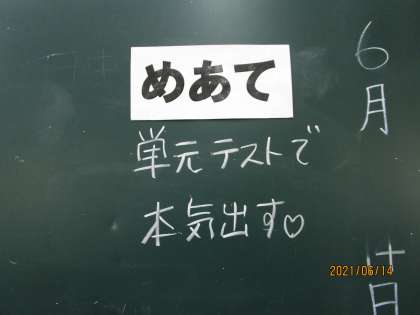 めあて
単元テストで
本気出す♡
6月
日
2021/06/14